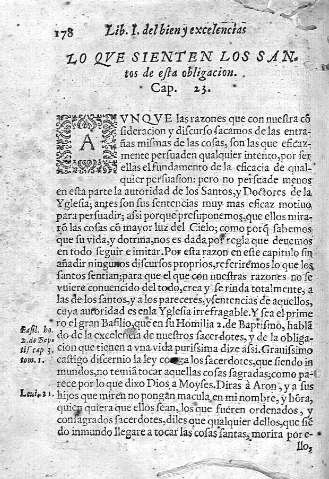 178 Lib. I. del bien y excelencias
LO QVE SIENTEN LOS SAN-
tos de esta obligacion.
Cap. 23.
AVNQVE las razones que con nuestra cõ
sideracion y discurso sacamos de las entra-
ñas mismas de las cosas, son las que eficaz-
mente persuaden qualquier intento, por ser
ellas el fundamento de la eficacia de qual-
quier persuasion: pero no persuade menos
en esta parte la autoridad de los Santos, y Doctores de la
Yglesia; antes son sus sentencias muy mas eficaz motivo
para persuadir; assi porque presuponemos, que ellos mira-
rõ las cosas cõ mayor luz del Cielo; como porq̃ sabemos
que su vida, y dotrina, nos es dada por regla que deuemos
en todo seguir e imitar. Por esta razon en este capitulo sin
añadir ningunos discursos proprios, referiremos lo que los
santos sentian; para que el que con nuestras razones no se
tuuiere conuencido del todo, crea y se rinda totalmente, a
las de los santos, y a los pareceres, y sentencias de aquellos,
cuya autoridad es en la Yglesia irrefragable. Y sea el prime-
ro el gran Basilio, que en su Homilia 2. de Baptismo, hablã
do de la excelencia de nuestros sacerdotes, y de la obliga-
cion que tienen a vna vida purissima dize assi. Grauissimo
castigo discernio la ley contra los sacerdotes, que siendo in-
mundos, no temiã tocar aquellas cosas sagradas; como pa-
rece por lo que dixo Dios a Moyses. Diras à Aron, y a sus
hijos que miren no pongan macula, en mi nombre, y hõra,
quien quiera que ellos sean, los que fueren ordenados, y
consagrados sacerdotes, diles que qualquier dellos, que siẽ
do inmundo llegare a tocar las cosas santas, morira por e-
llo,
Basil. ho.
2. de Bap
tis. cap. 3.
tom. 1.
Leui. 21.